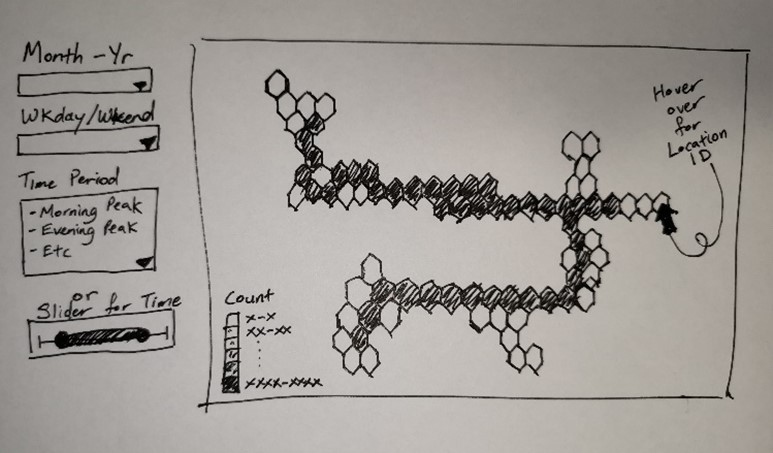 Month - Yr
Wkday/Wkend
Time Period
- Morning Peak
- Evening Peak
- Etc
or
Slider for Time
Count
x-x
xx-xx
xxxx-xxxx
Hover
over
for
Location
ID